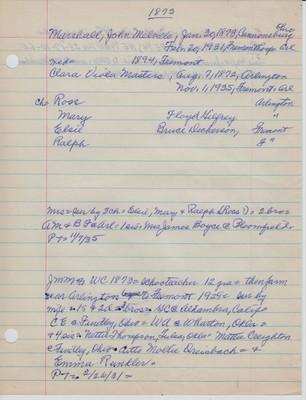 1873
Marshall, John Melville; Jan. 20, 1873, Cannonsburg Ohio
Feb. 20, 1931, Fremont
1894, Fremont
Clara Viola Masters; Aug. 7, 1872, Arlington
Nov. 1, 1935, Fremont, Arl
Ch: Rose Arlington
Mary Floyd Gilfrey "
Elsie Bruce Dickerson, Fremont
Ralph "
Mrs = sur by 3ch = Elsie, Mary & Ralph (Rose?) = 2 bros =
AM & BF = Arl = 1 sis = Mrs James Boyce @ Bloomfield =
P-T= 4/7/35
JMM b WC 1873 = school teacher 12 yrs = then farm
near Arlington to Fremont 1925 = sur by
wife = 1s & 2d = 3 bros = HC @ Alhambra, Calif =
CE @ Findlay, Ohio = WA @ Wharton, Ohio =
& 4 sis = Nettie Thompson, Tulsa, Okla = Mattie Creighton
@ Findlay, Ohio = Catts Mollie Dreisbach = &
Emma Runkler =
P-T= 2/26/31 =